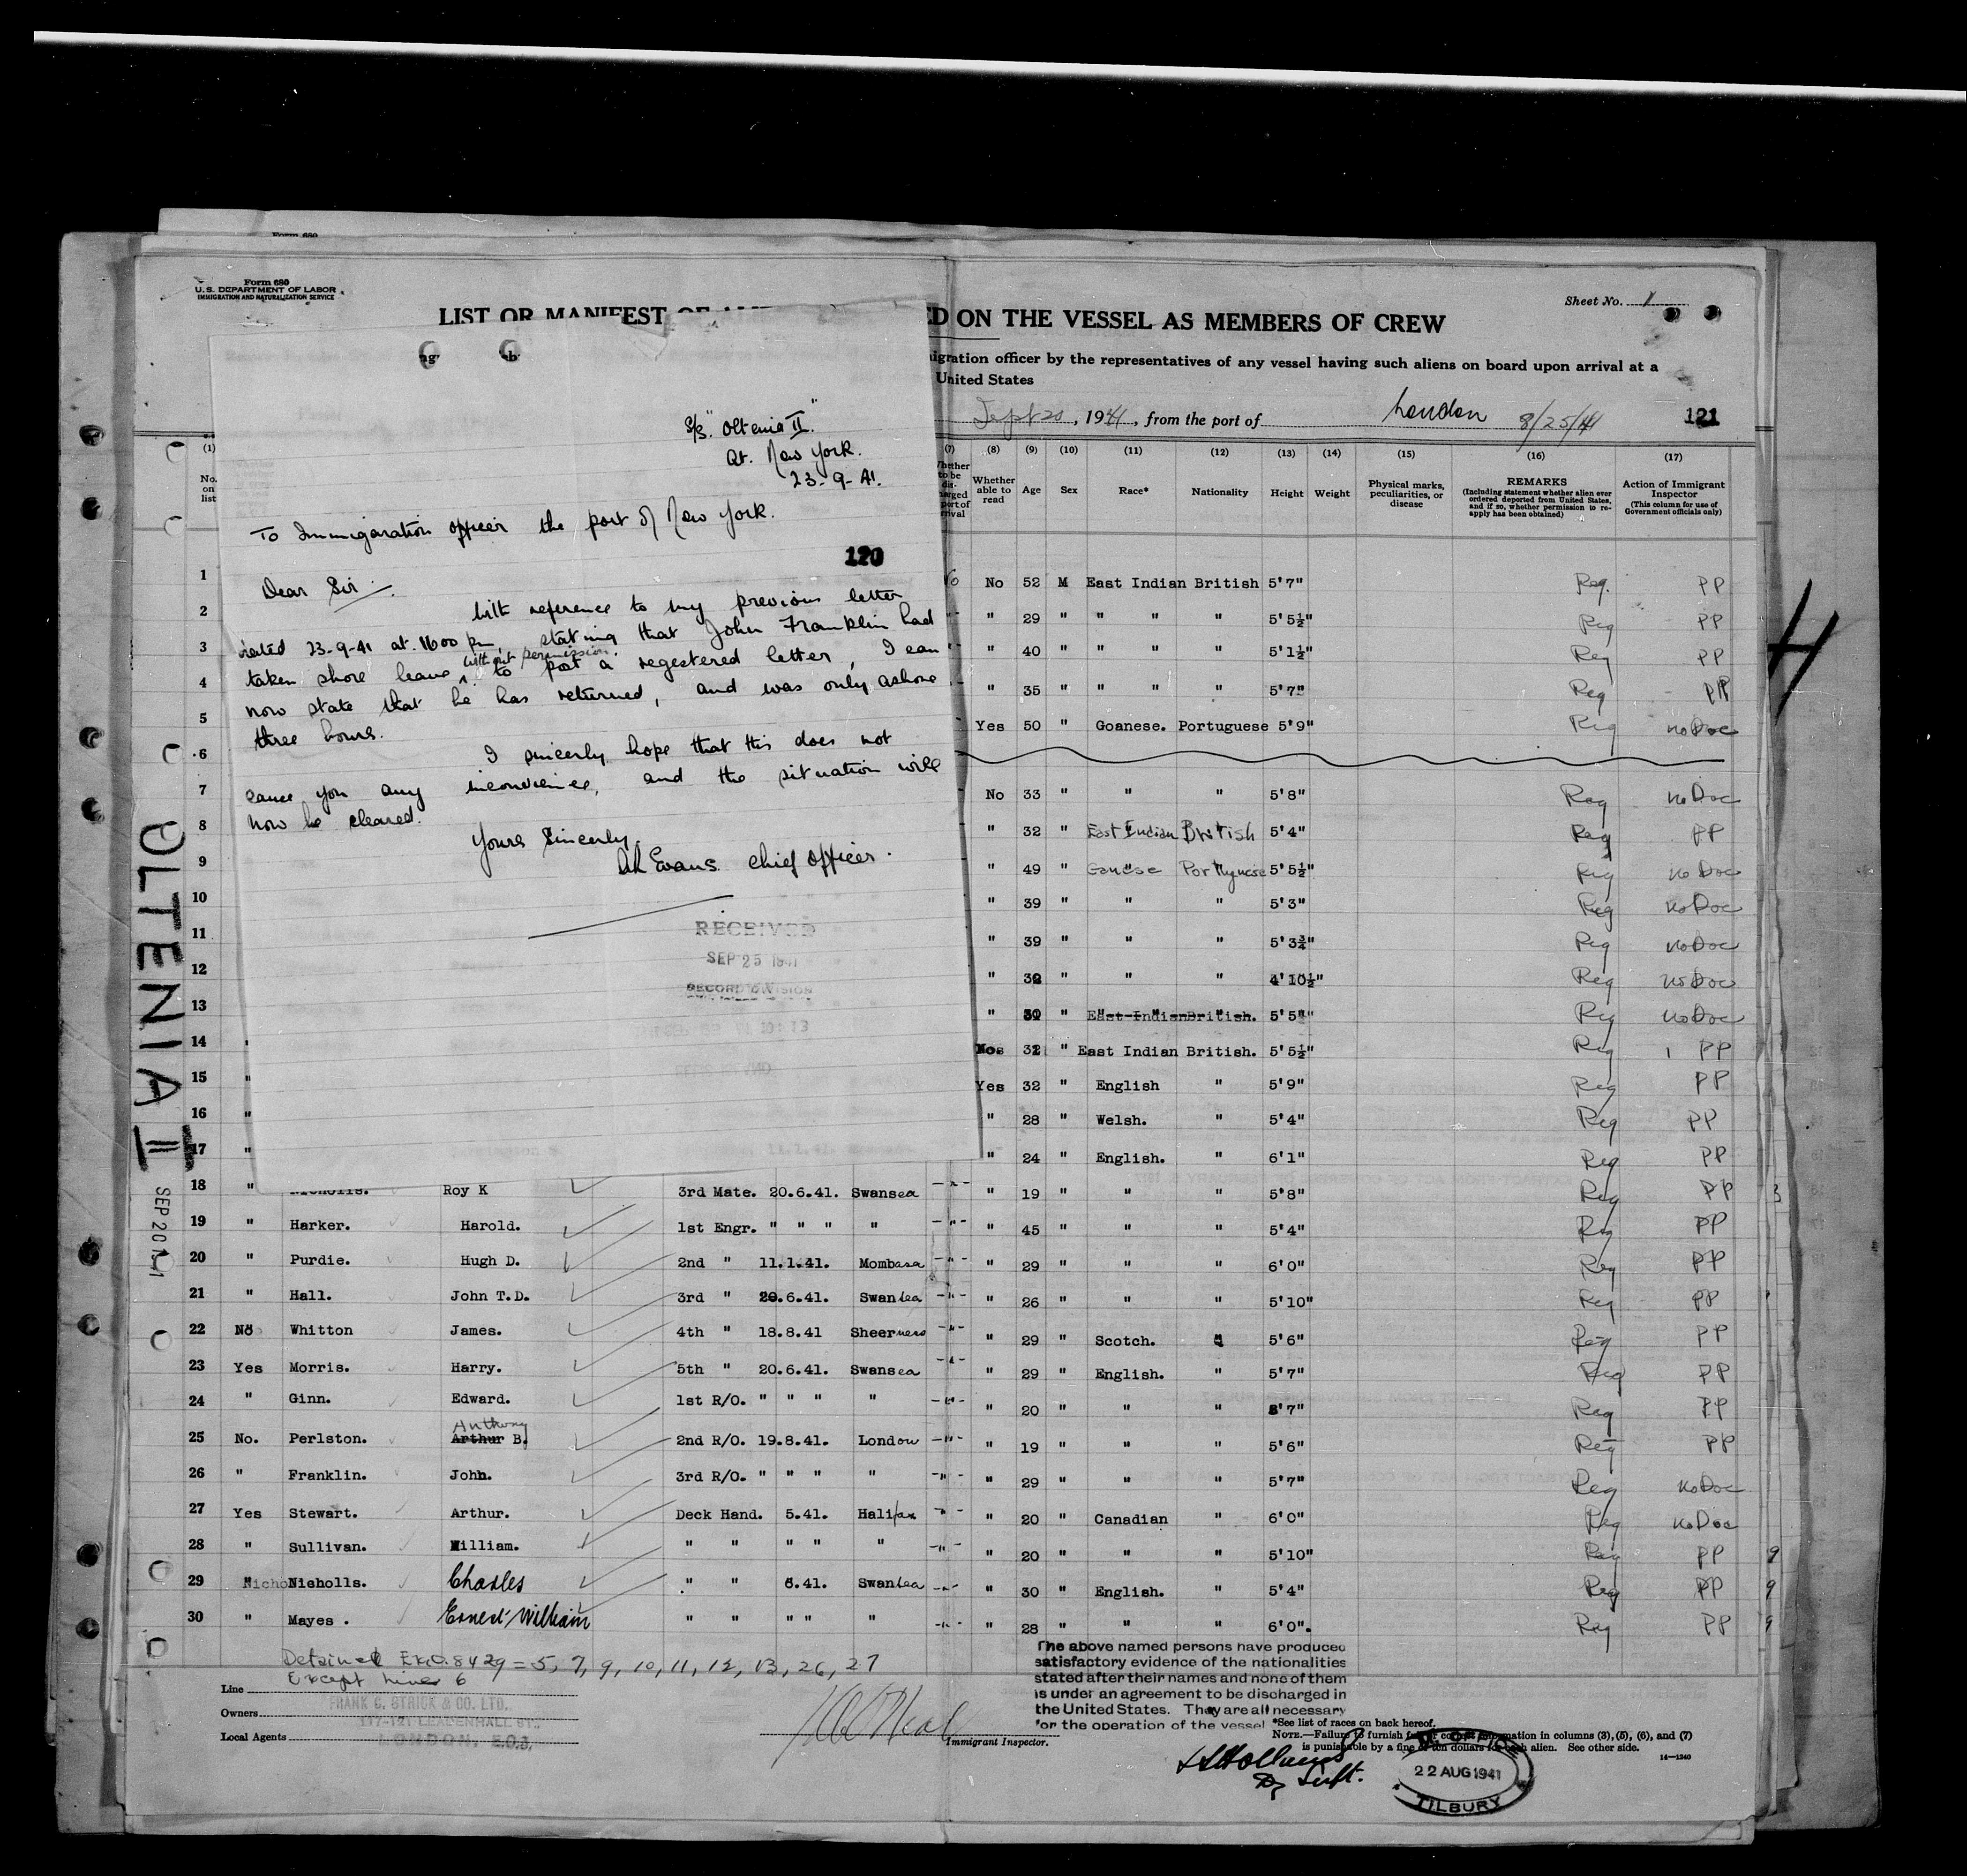 Form 680
U.S. DEPARTMENT OF LABOR
IMMIGRATION AND NATURALIZATION SERVICE
Sheet No. 1
LIST OR MANIFEST OF
ED ON THE VESSEL AS MEMBERS OF CREW
igration officer by the representatives of any vessel having such aliens on board upon arrival at a
United States
Sept 20, 1941, from the port of London 8/25/41 121
S/S. "Oltenia II."
At. New York.
23-9-41.
To Immigaration officer the port of New York.
120
Dear Sir
With reference to my previous letter
dated 23-9-41 at. 1600 pm, stating that John Franklin had
without permission.
taken shore leave to post a regestered letter, I can
now state that he has returned, and was only ashore
three hours.
I sincerly hope that this does not
cause you any inconvience, and the situation will
now be cleared.
Yours Sincerly,
Evans. chief officer.
RECEIVED
SEP 25 1941
RECORD DIVISION
OLTENIA II
SEP 20 1941
(1) (7) (8) (9) (10) (11) (12) (13) (14) (15) (16) (17)
No. on list
Whether able to read
Age
Sex
Race*
Nationality
Height
Weight
Physical marks, peculiarities, or disease
REMARKS
(Including statement whether alien ever ordered deported from United States, and if so, whether permission to re-apply has been obtained)
Action of Immigrant Inspector
(This column for use of Government officials only)
1 No 52 M East Indian British 5'7" Reg. PP
2 " 29 " " " " 5'5½" Reg PP
3 " 40 " " " " 5'1½" Reg PP
4 " 35 " " " " 5'7" Reg PP
5 Yes 50 " Goanese. Portuguese 5'9" Reg no Doc
6
7 No 33 " " " 5'8" Reg no Doc
8 " 32 " East Indian British 5'4" Reg PP
9 " 49 " Goanese Portuguese 5'5½" Reg no Doc
10 " 39 " " " 5'3" Reg no Doc
11 " 39 " " " 5'3¾" Reg no Doc
12 " " " " 4'10½" Reg no Doc
13 " " East Indian British. 5'5" Reg no Doc
14 " " East Indian British. 5'5½" Reg PP
15 " Yes 32 " English " 5'9" Reg PP
16 " " 28 " Welsh. " 5'4" Reg PP
17 " " 24 " English. " 6'1" Reg PP
18 " Nicholls. Roy K 3rd Mate. 20.6.41. Swansea " " 19 " " " 5'8" Reg PP 3
19 " Harker. Harold. 1st Engr. " " " " " " 45 " " " 5'4" Reg PP
20 " Purdie. Hugh D. 2nd " 11.1.41. Mombasa " " 29 " " " 6'0" Reg PP
21 " Hall. John T.D. 3rd " 20.6.41. Swansea " " 26 " " " 5'10" Reg PP
22 No Whitton James. 4th " 18.8.41 Sheerness " " 29 " Scotch. " 5'6" Reg PP
23 Yes Morris. Harry. 5th " 20.6.41. Swansea " " 29 " English. " 5'7" Reg PP
24 " Ginn. Edward. 1st R/O. " " " " " " 20 " " " 5'7" Reg PP
Anthony
25 No. Perlston. Arthur B. 2nd R/O. 19.8.41. London " " 19 " " " 5'6" Reg PP
26 " Franklin. John. 3rd R/O. " " " " " " 29 " " " 5'7" Reg no Doc
27 Yes Stewart. Arthur. Deck Hand. 5.41. Halifax " " 20 " Canadian " 6'0" Reg no Doc
28 " Sullivan. William. " " " " " " " 20 " " " 5'10" Reg PP 9
29 " Nicholls. Charles " " 6.41. Swansea " " 30 " English. " 5'4" Reg PP 9
30 " Mayes. Ernest William " " " " " " " 28 " " " 6'0". Reg PP 9
Detained Ex.O. 8429 = 5, 7, 9, 10, 11, 12, 13, 26, 27
Except Line 6
Line
FRANK C. STRICK & CO. LTD.
Owners
117-121 LEADENHALL ST.
Local Agents
LONDON, E.C.3.
Immigrant Inspector.
The above named persons have produced
satisfactory evidence of the nationalities
stated after their names and none of them
is under an agreement to be discharged in
the United States. They are all necessary
for the operation of the vessel
*See list of races on back hereof.
NOTE.—Failure to furnish full or correct information in columns (3), (5), (6), and (7)
is punishable by a fine of ten dollars for each alien. See other side.
14—1240
22 AUG 1941
TILBURY